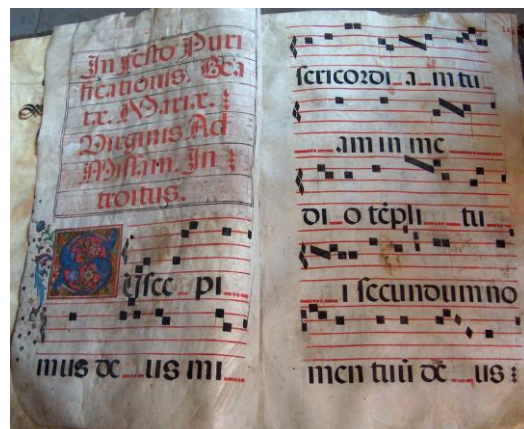 In festo Puri
ficationis. Bea
tæ. Mariæ.
Virginis. Ad
Missam. In
troitus.
Suscepi
mus de us mi
sericordi a m tu
am in me
di o tēpli tu
i secundum no
men tuū de us :